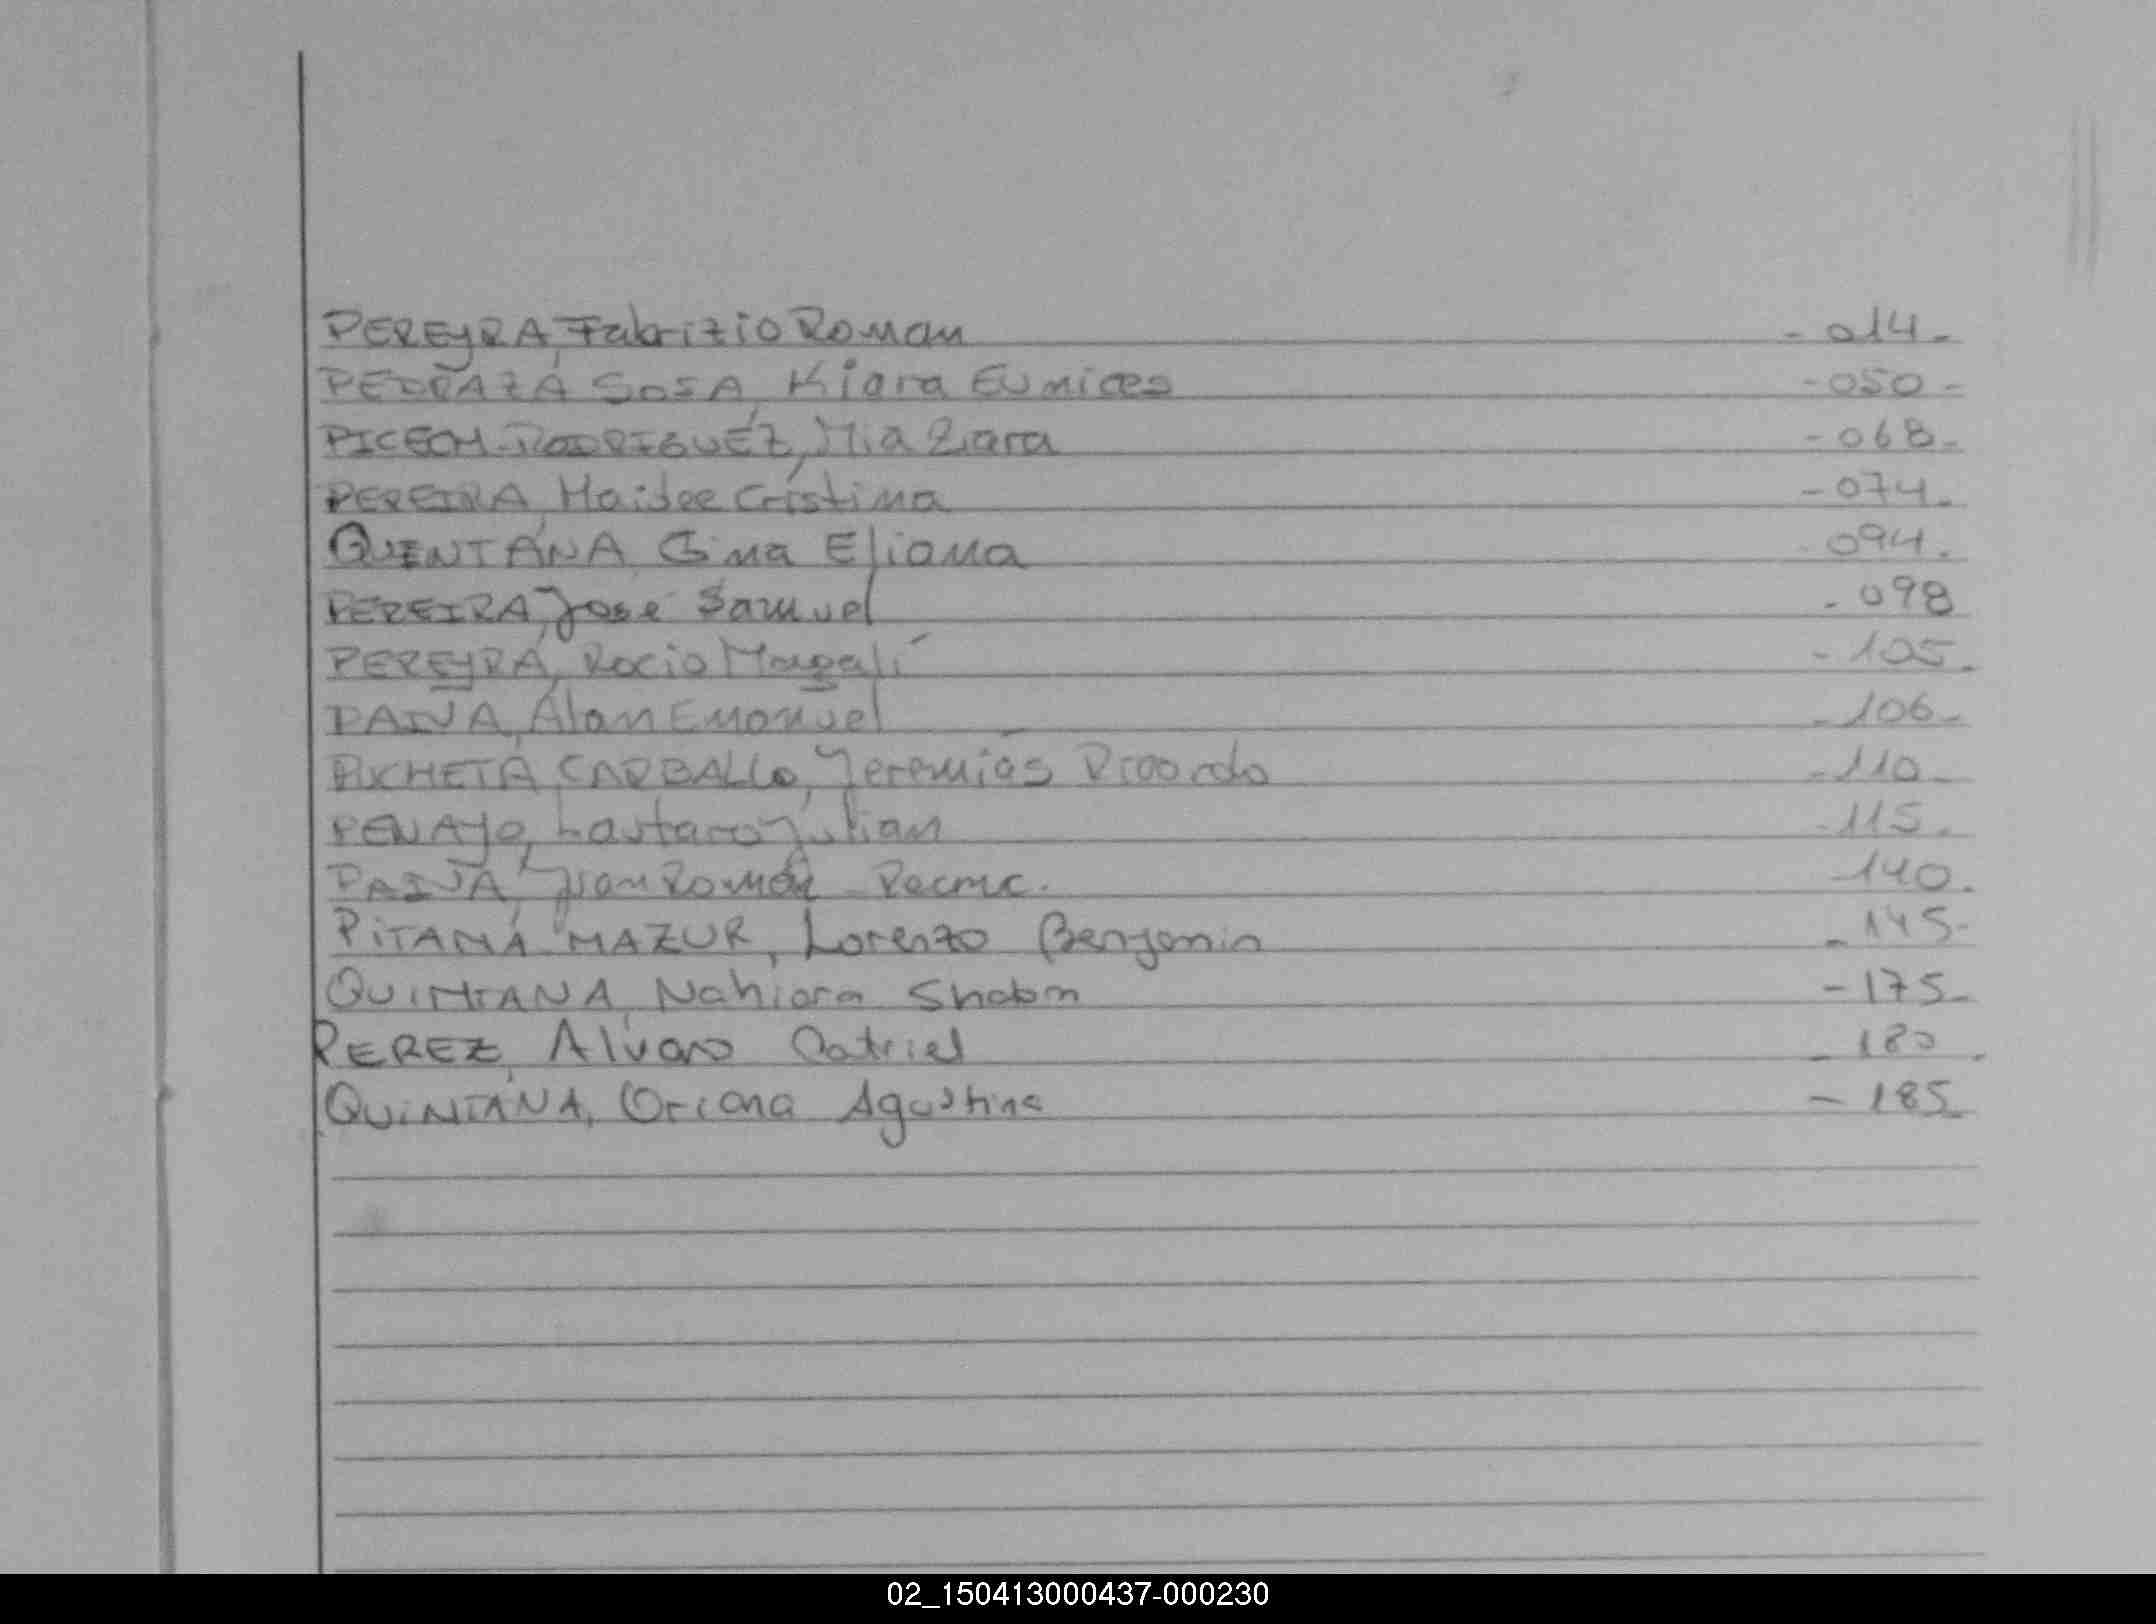 PEREYRA, Fabrizio Roman - 014-
PEDRAZA SOSA, Kiara Eunices - 050 -
RODRIGUEZ, Mia Ziara - 068-
PEREIRA, Haidee Cristina - 074-
QUINTANA, Gina Eliana - 094.
PEREIRA, José Samuel - 098
PEREYRA, Rocio Magalí - 105.
PAIVA, Alan Emanuel - 106-
PUCHETA CARBALLO, Jeremías Ricardo - 110-
PENAYO, Lautaro Julian - 115.
PAIVA, Jian Román Recnc. - 140.
PITANA MAZUR, Lorenzo Benjamin - 145-
QUINTANA, Nahiara - 175-
PEREZ, Alvaro Catriel - 180.
QUINTANA, Oriana Agustina - 185-
02_150413000437-000230